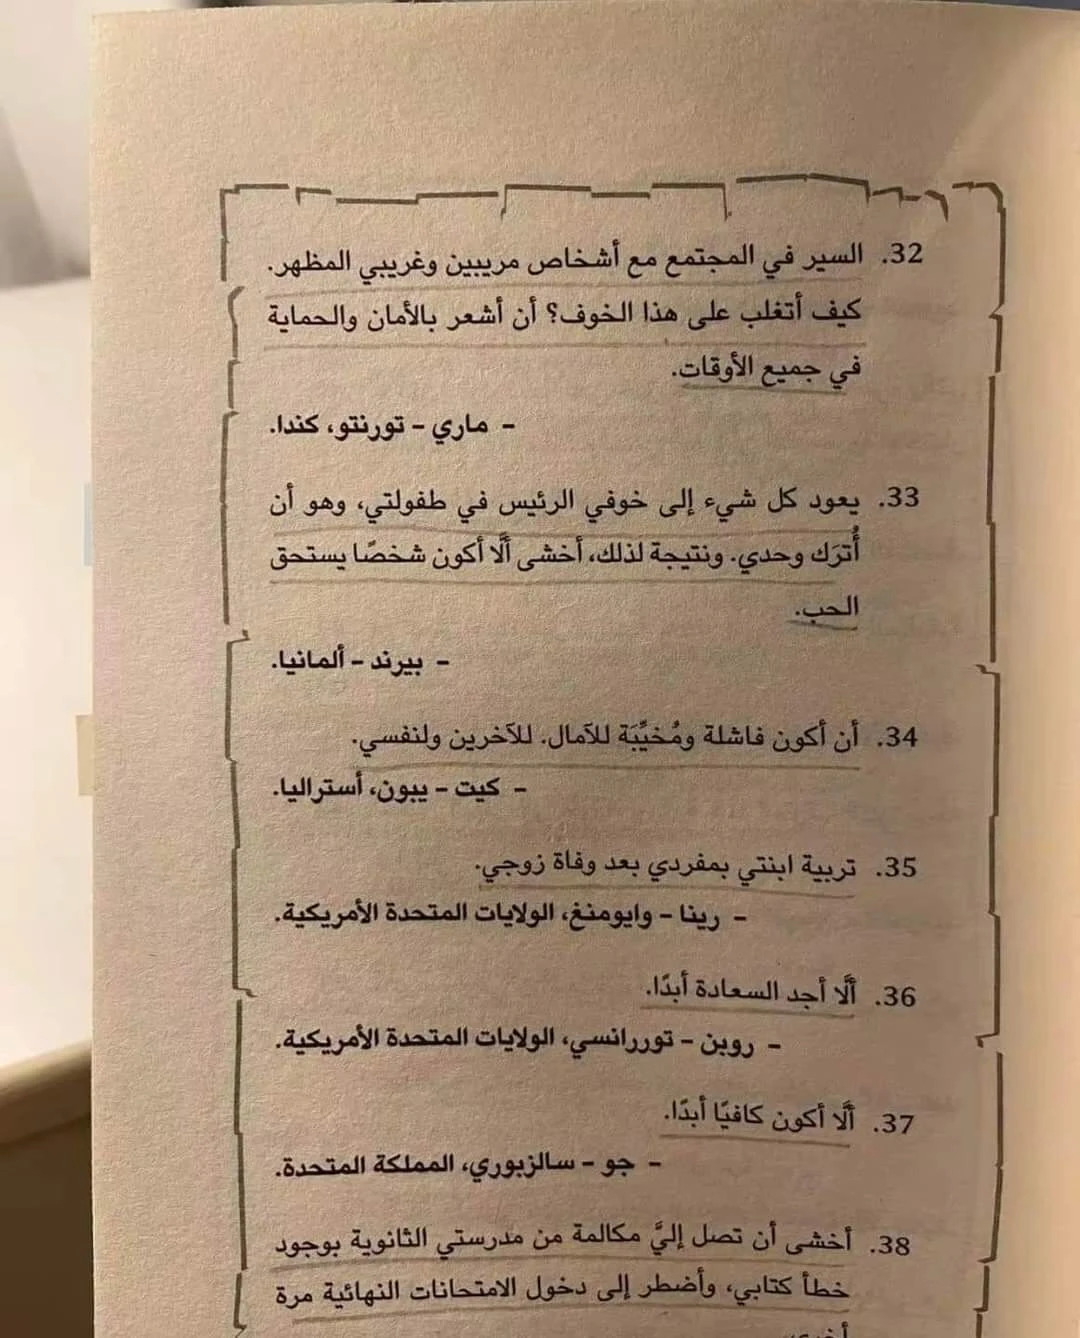 32. السير في المجتمع مع أشخاص مريبين وغريبي المظهر.
كيف أتغلب على هذا الخوف؟ أن أشعر بالأمان والحماية
في جميع الأوقات.
- ماري - تورنتو، كندا.
33. يعود كل شيء إلى خوفي الرئيس في طفولتي، وهو أن
أُترَك وحدي. ونتيجة لذلك، أخشى ألَّا أكون شخصًا يستحق
الحب.
- بيرند - ألمانيا.
34. أن أكون فاشلة ومُخيِّبَة للآمال. للآخرين ولنفسي.
- كيت - يبون، أستراليا.
35. تربية ابنتي بمفردي بعد وفاة زوجي.
- رينا - وايومنغ، الولايات المتحدة الأمريكية.
36. ألَّا أجد السعادة أبدًا.
- روبن - توررانسي، الولايات المتحدة الأمريكية.
37. ألَّا أكون كافيًا أبدًا.
- جو - سالزبوري، المملكة المتحدة.
38. أخشى أن تصل إليَّ مكالمة من مدرستي الثانوية بوجود
خطأ كتابي، وأضطر إلى دخول الامتحانات النهائية مرة